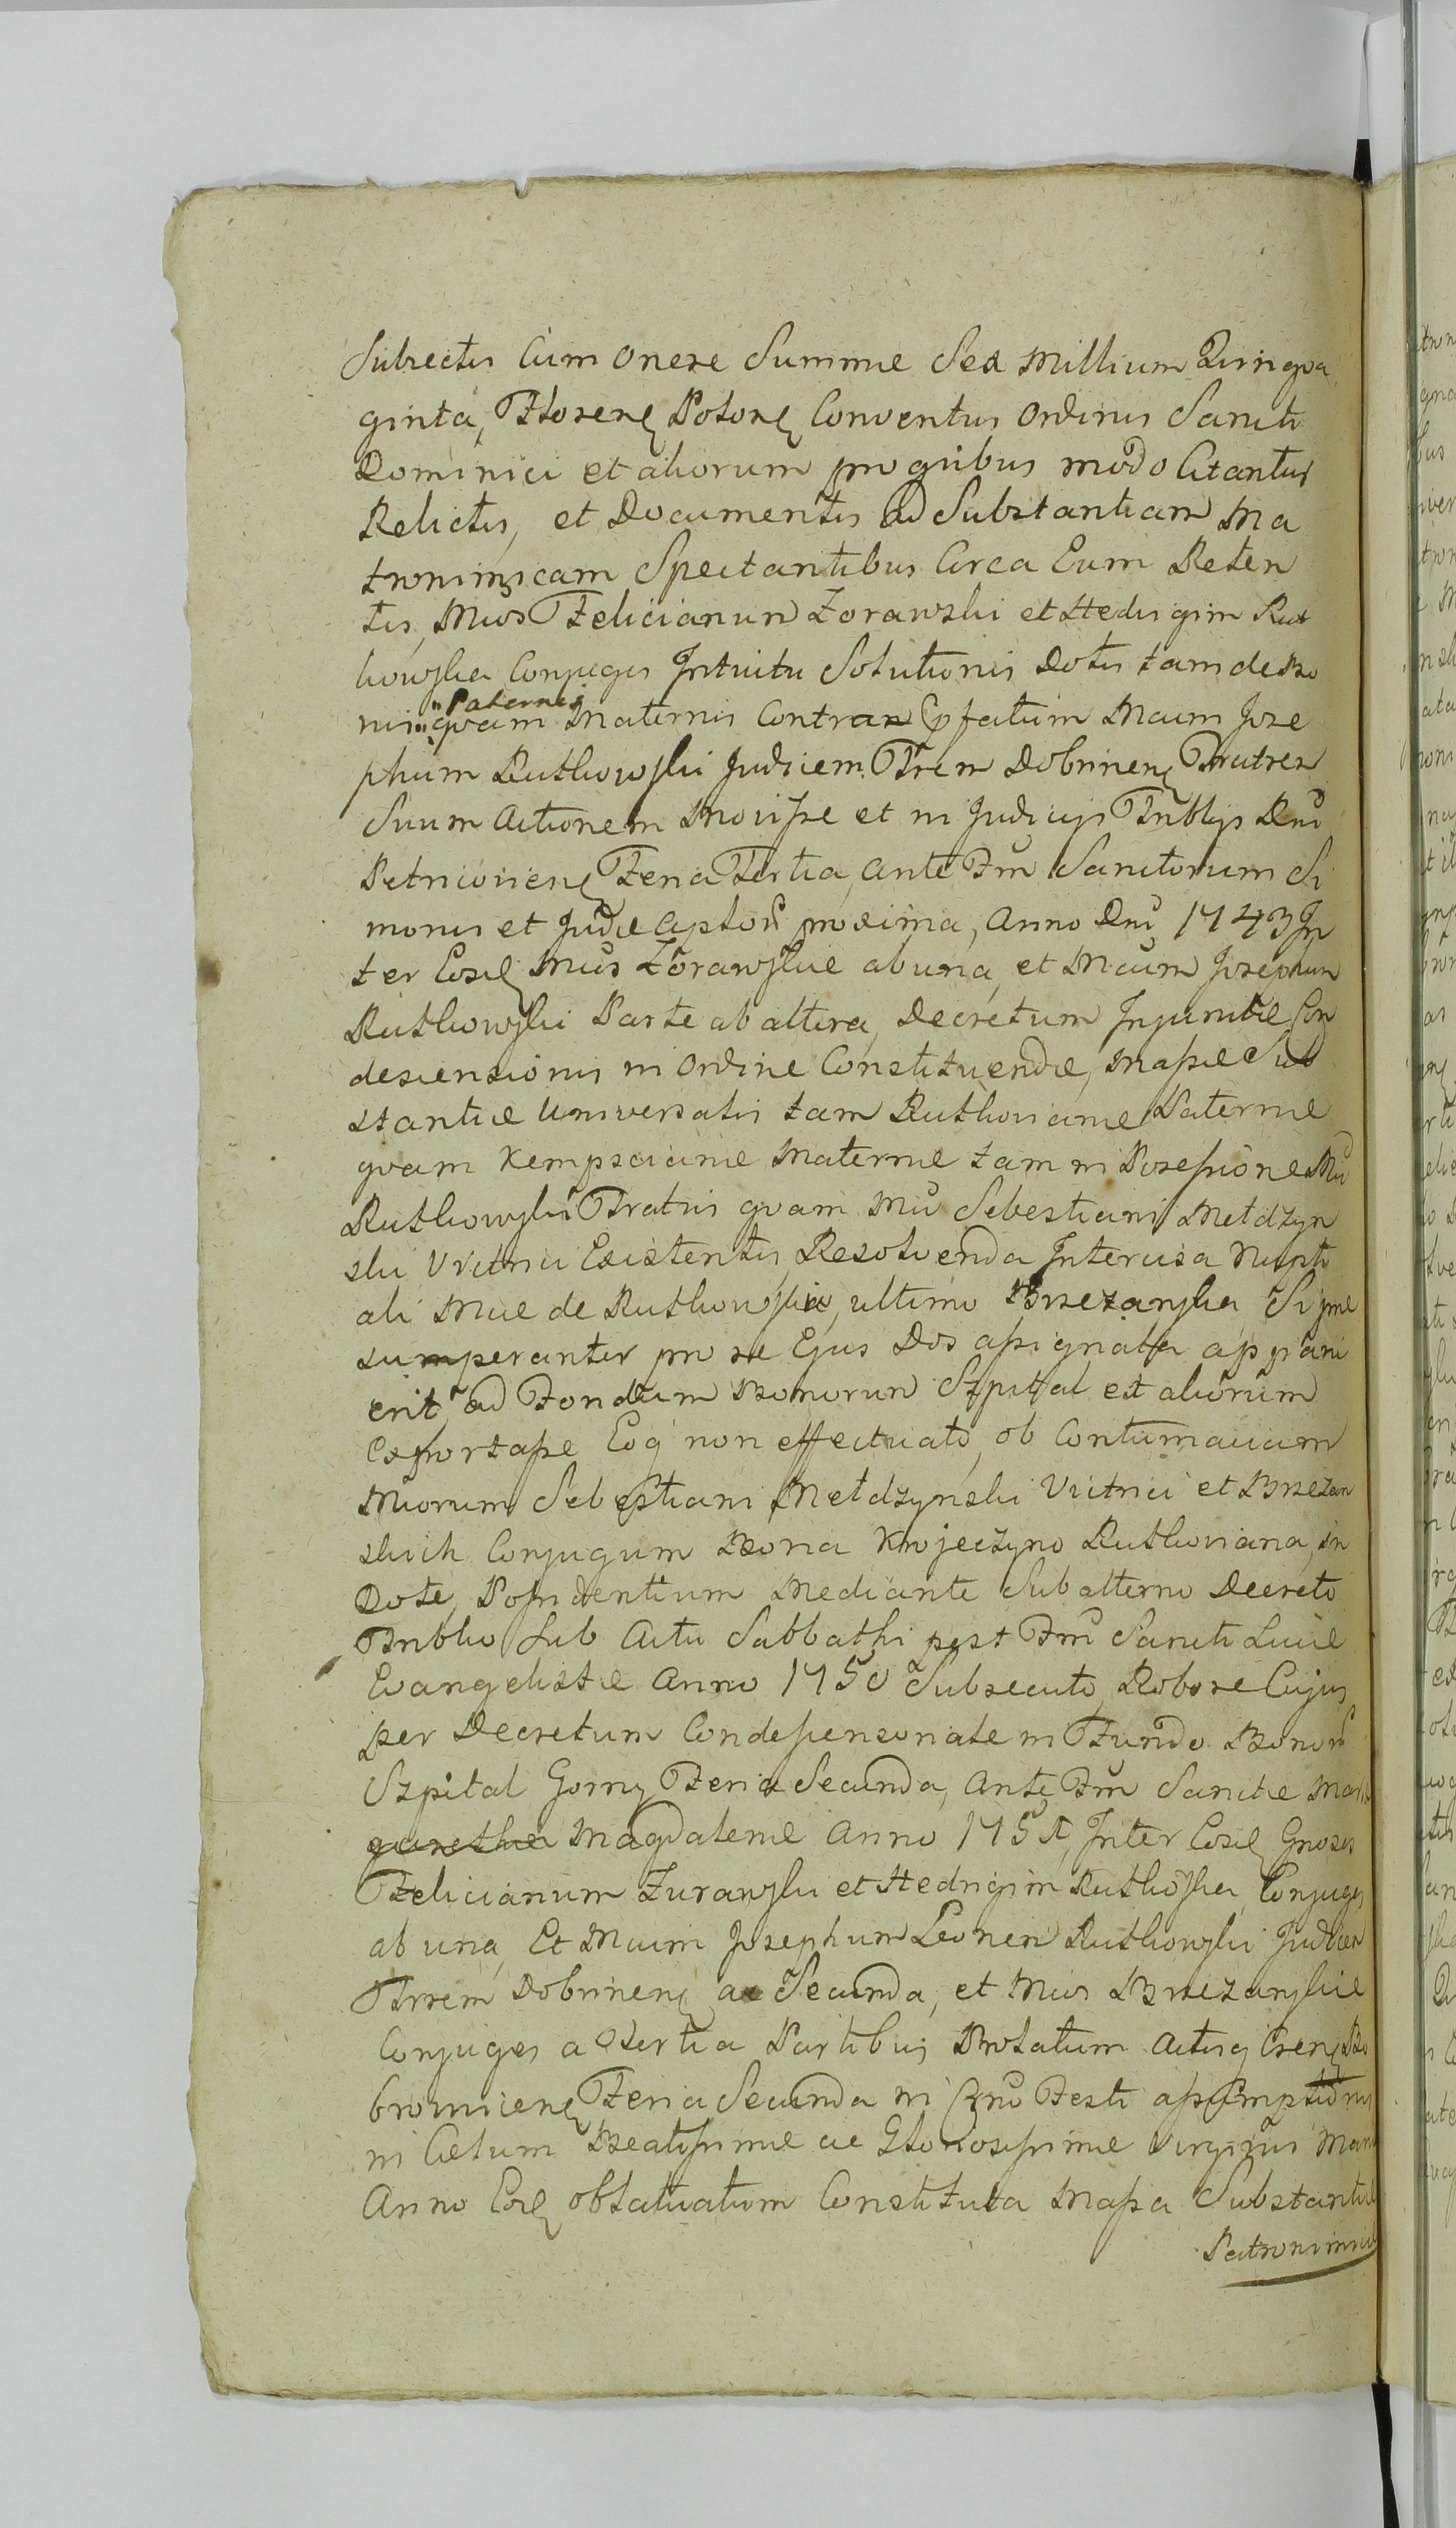 Subrectis Cum Onere Summæ Sex Millium Quingva
ginta, Florenę Polonę Conventus Ordinis Sancti
Dominici et aliorum pro qvibus modo Citantur
Relictis, et Documentis ad Substantiam Ma
tronimicam Spectantibus Circa Eum Reten
tis, Mcos Felicianum Zorawski et Hedvigim Rut
kowska Conjuges Intuitu Solutionis Dotis tam de Bo
nis "Paternis qvam Maternis Contra Eפfatum Mcum Jose
phum Rutkowski Judicem Trrem Dobrinenę Fratrem
Suum Actionem Movisse et in Judicijs Tribblijs Rnĩ
Petricovienę Feria Tertia, ante Fm Sanctorum Si
monis et Judæ Aptorũ proxima, Anno Dni 1743 In
ter Eosdę Mcos Zorawskie ab una, et Mcum Josephum
Rutkowski Parte ab altera, Decretum Injunctæ Con
descensionis in Ordine Constituendæ, Massæ Sub
stantiæ Universalis tam Rutkovianæ Paternæ
qvam Kempscianæ Maternæ tam in Possessione Mci
Rutkowski Fratris qvam Mci Sebestiani Mełdzyn
ski Vitrici Existentis, Resolvenda Intercisa Nupti
ali Mcæ de Rutkowskie, ultimo Brzezanska
sumperanter pro se Ejus Dos assignata
erit, ad Fondum Bonorum Szpital et aliorum
Exportasse Eoq non effectuato, ob Contumaciam
Mcorum Sebestiani Mełdzynski Vitrici et Brzezan
skich Conjugum Bona Krojeczyno Rutkoviana, in
Dote, Possidentium Mediante Subalterno Decreto
Tribblio Sub Actu Sabbathi post Fm Sancti Lucæ
Evangelistæ Anno 1750 Subsecuto, Robore Cujus
per Decretum Condessensionale in Fundo Bonorũ
Szpital Gorny Feria Secunda, Ante Fm Sanctæ Mariæ
garethæ Magdalenæ Anno 1751, Inter Eosdę Gnosos
Felicianum Zurawski et Hedvigim Rutkoska, Conjuges
ab una, Et Mcum Josephum Leonem Rutkowski Judicem
Trrem Dobrinenę a Secunda, et Mcos Brzezanskie
Conjuges a Tertia Partibus Prolatum Actisq Csenę Bo
browicenę Feria Secunda in Crno Festi assumptionis
in Cælum Beatissimæ ac Gloriosissimæ Virginis Mariæ
Anno Eodę oblatuatum Constituta Massa Substantiæ
Patronimicæ